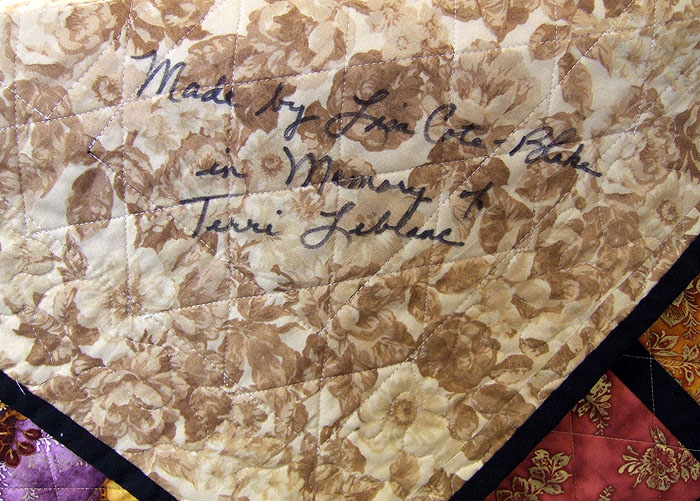 Made by Lisa Cote-Blake
in Memory of
Terri Leblanc